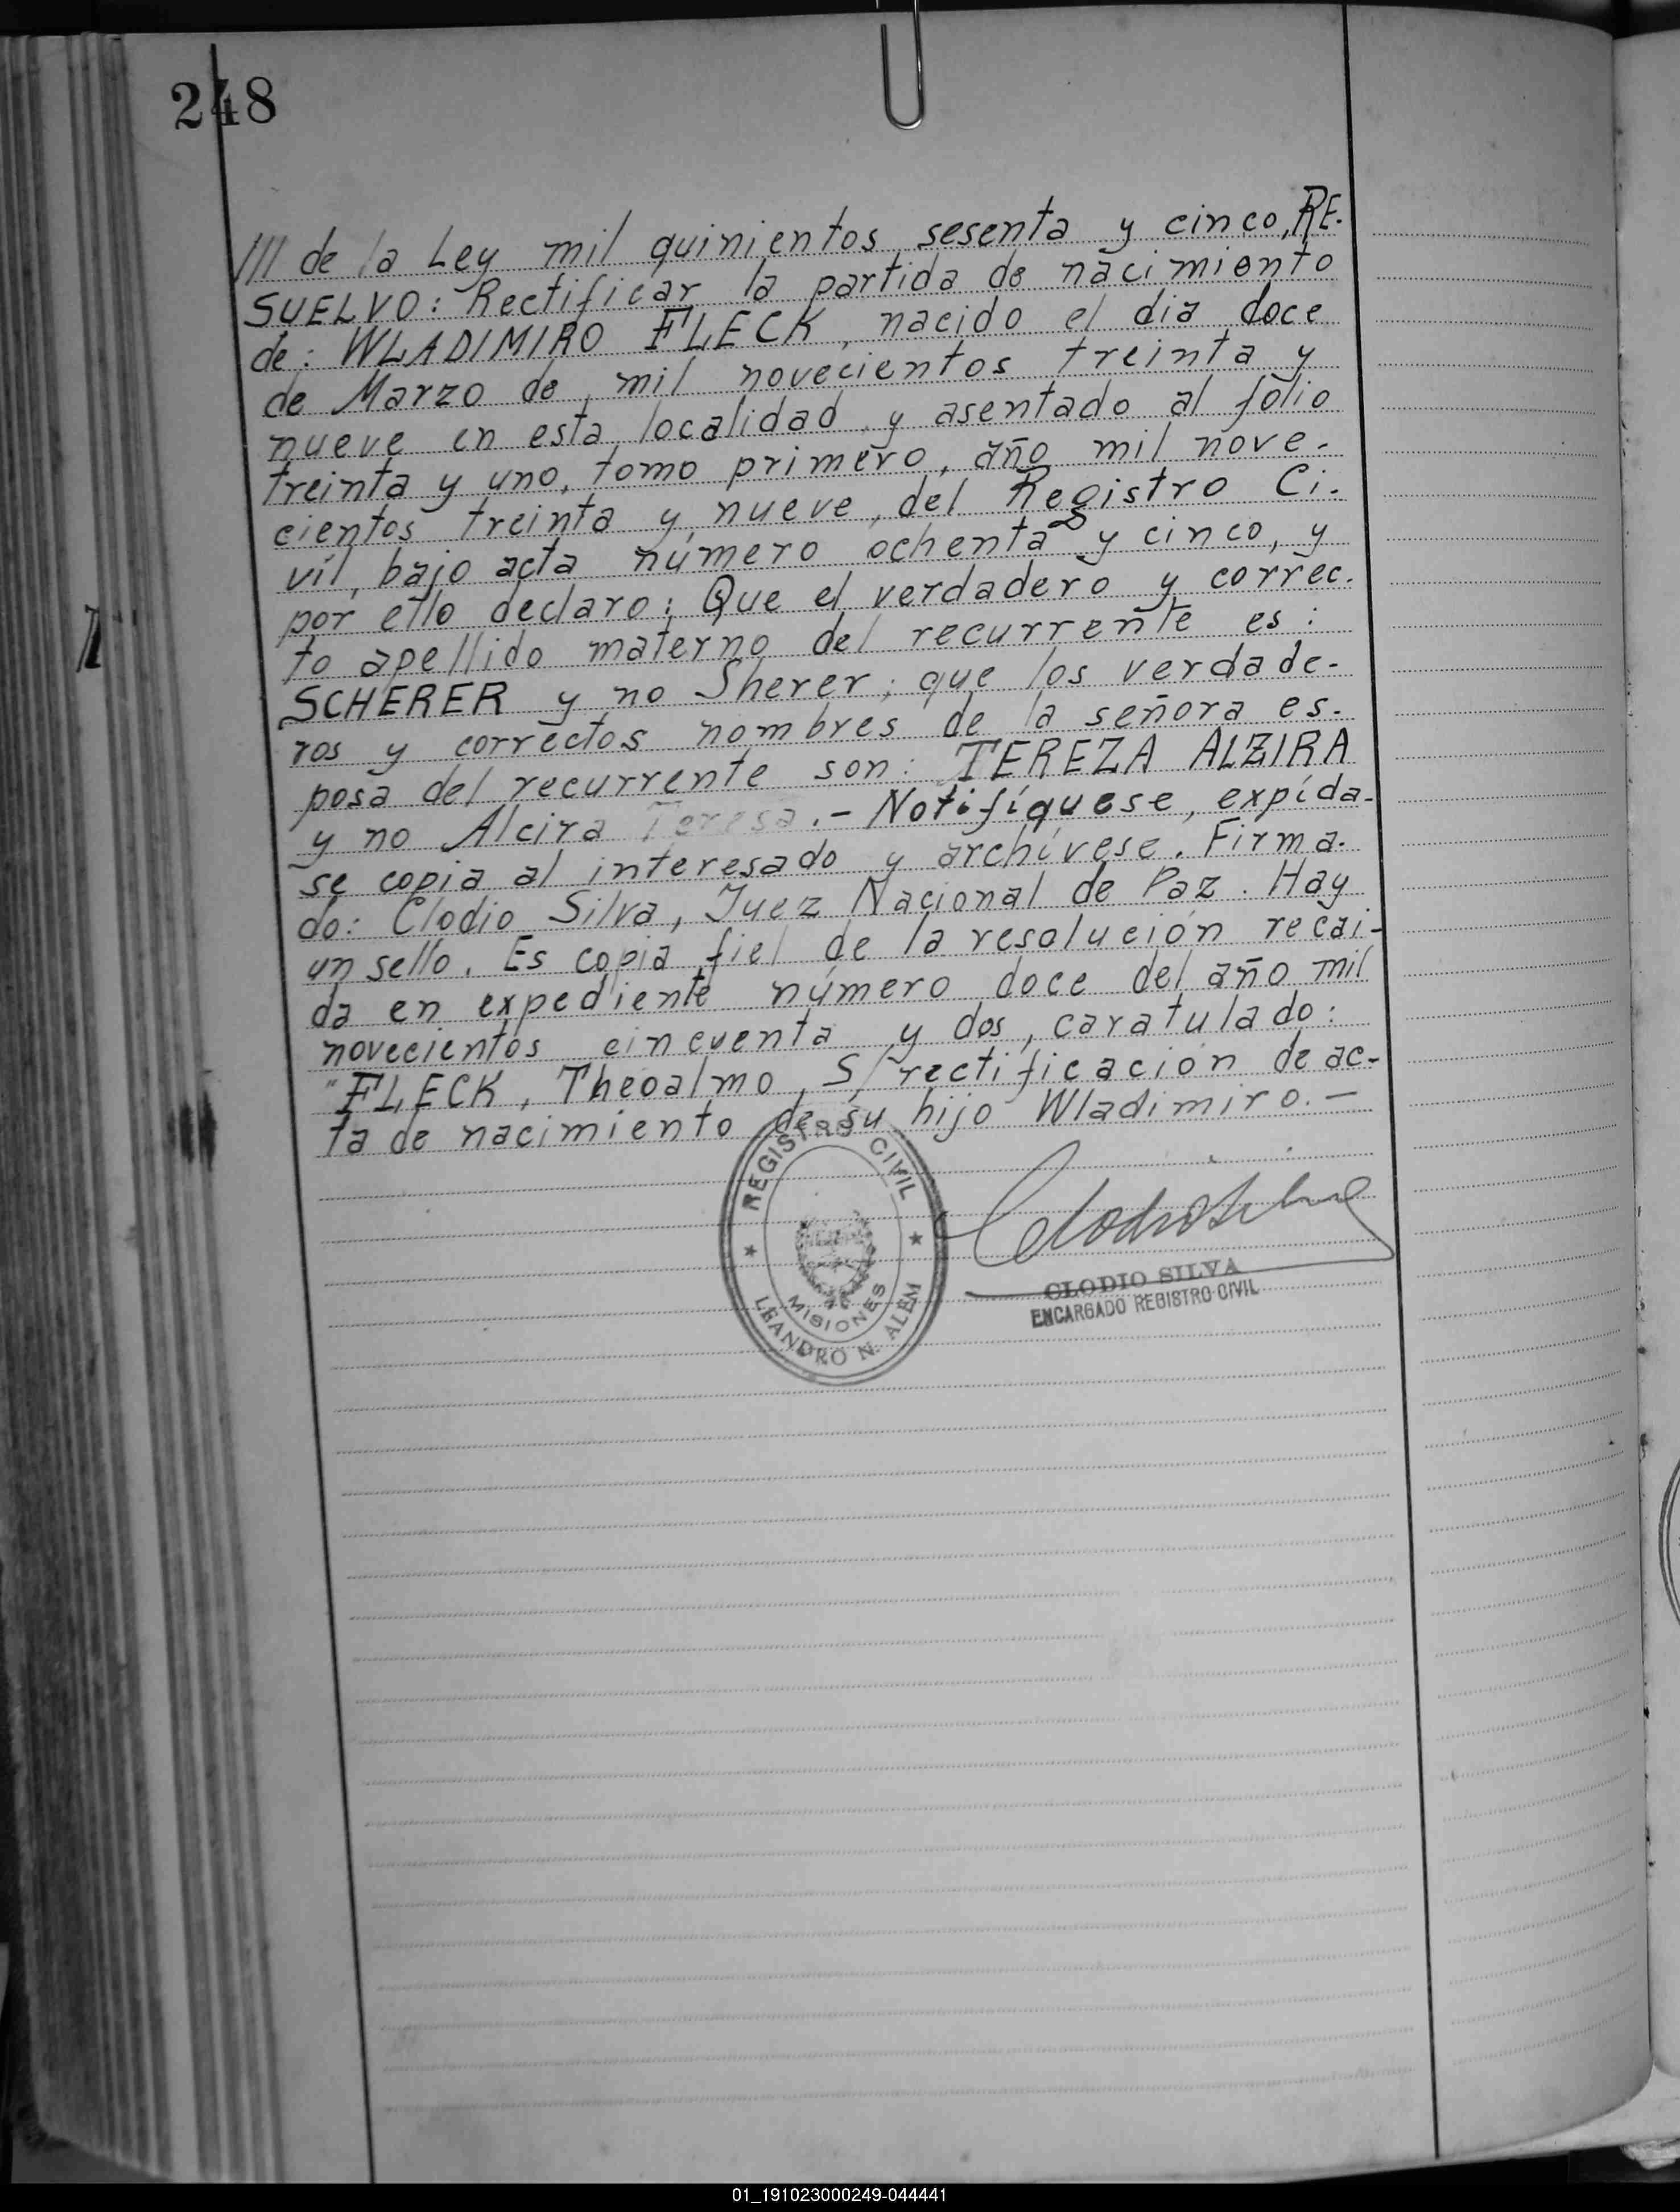 248
/// de la Ley mil quinientos sesenta y cinco, RE-
SUELVO: Rectificar la partida de nacimiento
de: WLADIMIRO FLECK, nacido el dia doce
de Marzo de mil novecientos treinta y
nueve en esta localidad y asentado al folio
treinta y uno, tomo primero, año mil nove-
cientos treinta y nueve, del Registro Ci-
vil, bajo acta número ochenta y cinco, y
por ello declaro: Que el verdadero y correc-
to apellido materno del recurrente es:
SCHERER y no Sherer; que los verdade-
ros y correctos nombres de la señora es-
posa del recurrente son: TEREZA ALZIRA
y no Alcira Teresa.- Notifíquese, expída-
se copia al interesado y archívese. Firma-
do: Clodio Silva, Juez Nacional de Paz. Hay
un sello. Es copia fiel de la resolución recai-
da en expediente número doce del año mil
novecientos cincuenta y dos, caratulado:
"FLECK, Theoalmo, S/ rectificación de ac-
ta de nacimiento de su hijo Wladimiro.-
REGISTRO CIVIL
MISIONES
LEANDRO N. ALEM
Clodio Silva
CLODIO SILVA
ENCARGADO REGISTRO CIVIL
01_191023000249-044441